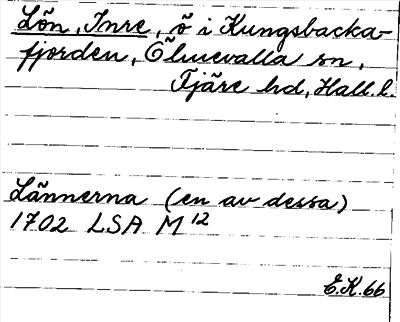 Lön, Inre, ö i Kungsbacka-
fjorden, Ölmevalla sn,
Fjäre hd, Hall. l.
Lännerna (en av dessa)
1702 LSA M 12
E.K. 66